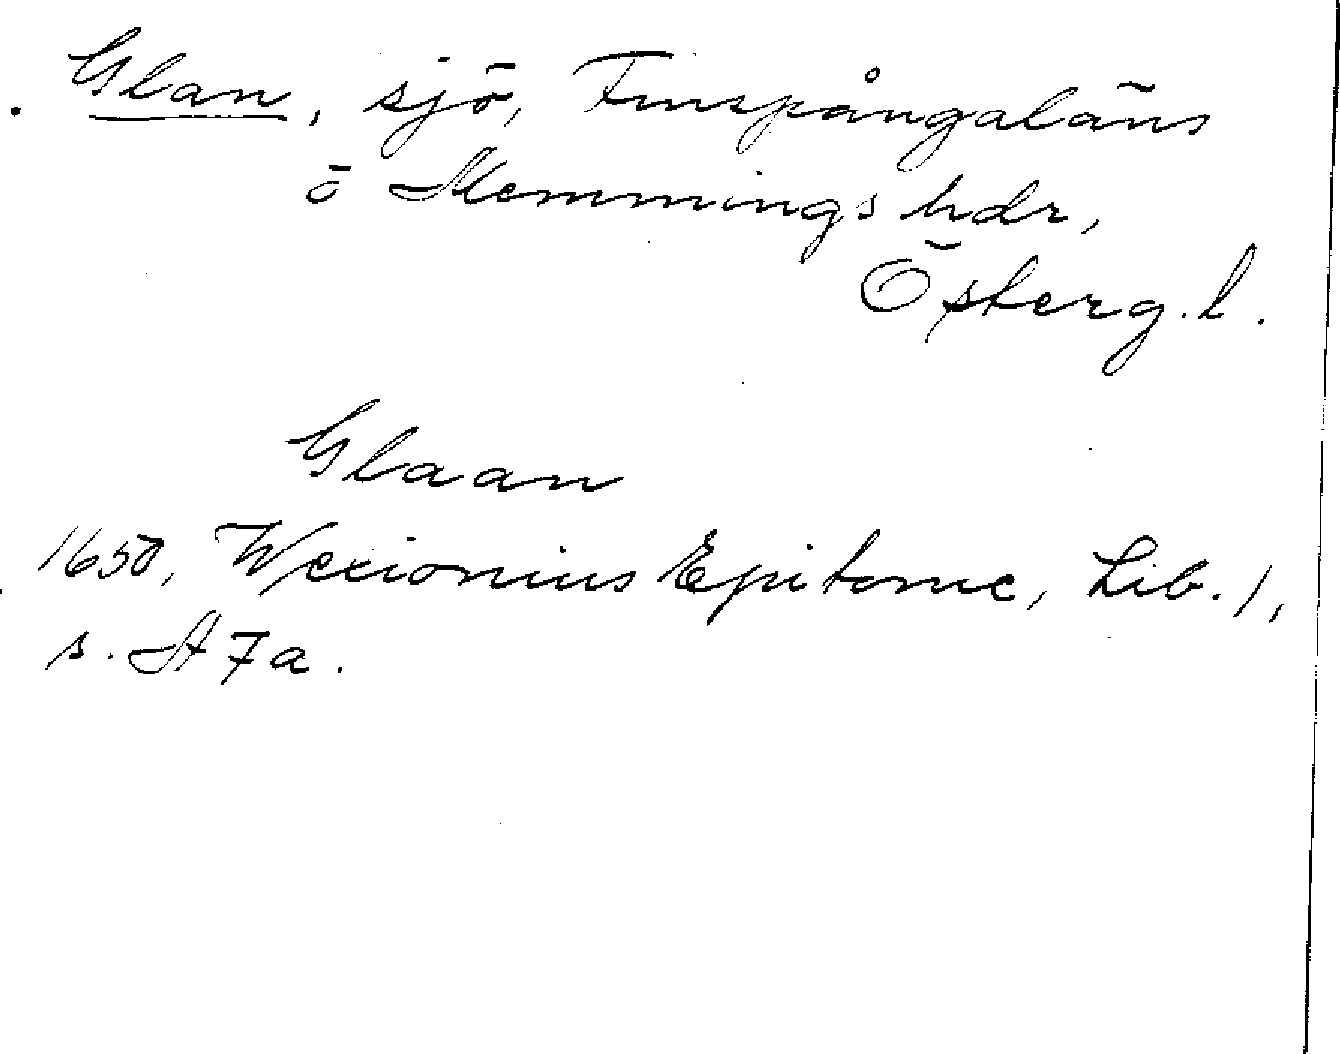 Glan, sjö, Finspångaläns
o Memmings hdr,
Österg.l.
Glaan
1650, Wexionius Epitome, Lib. 1,
s. A 7a.